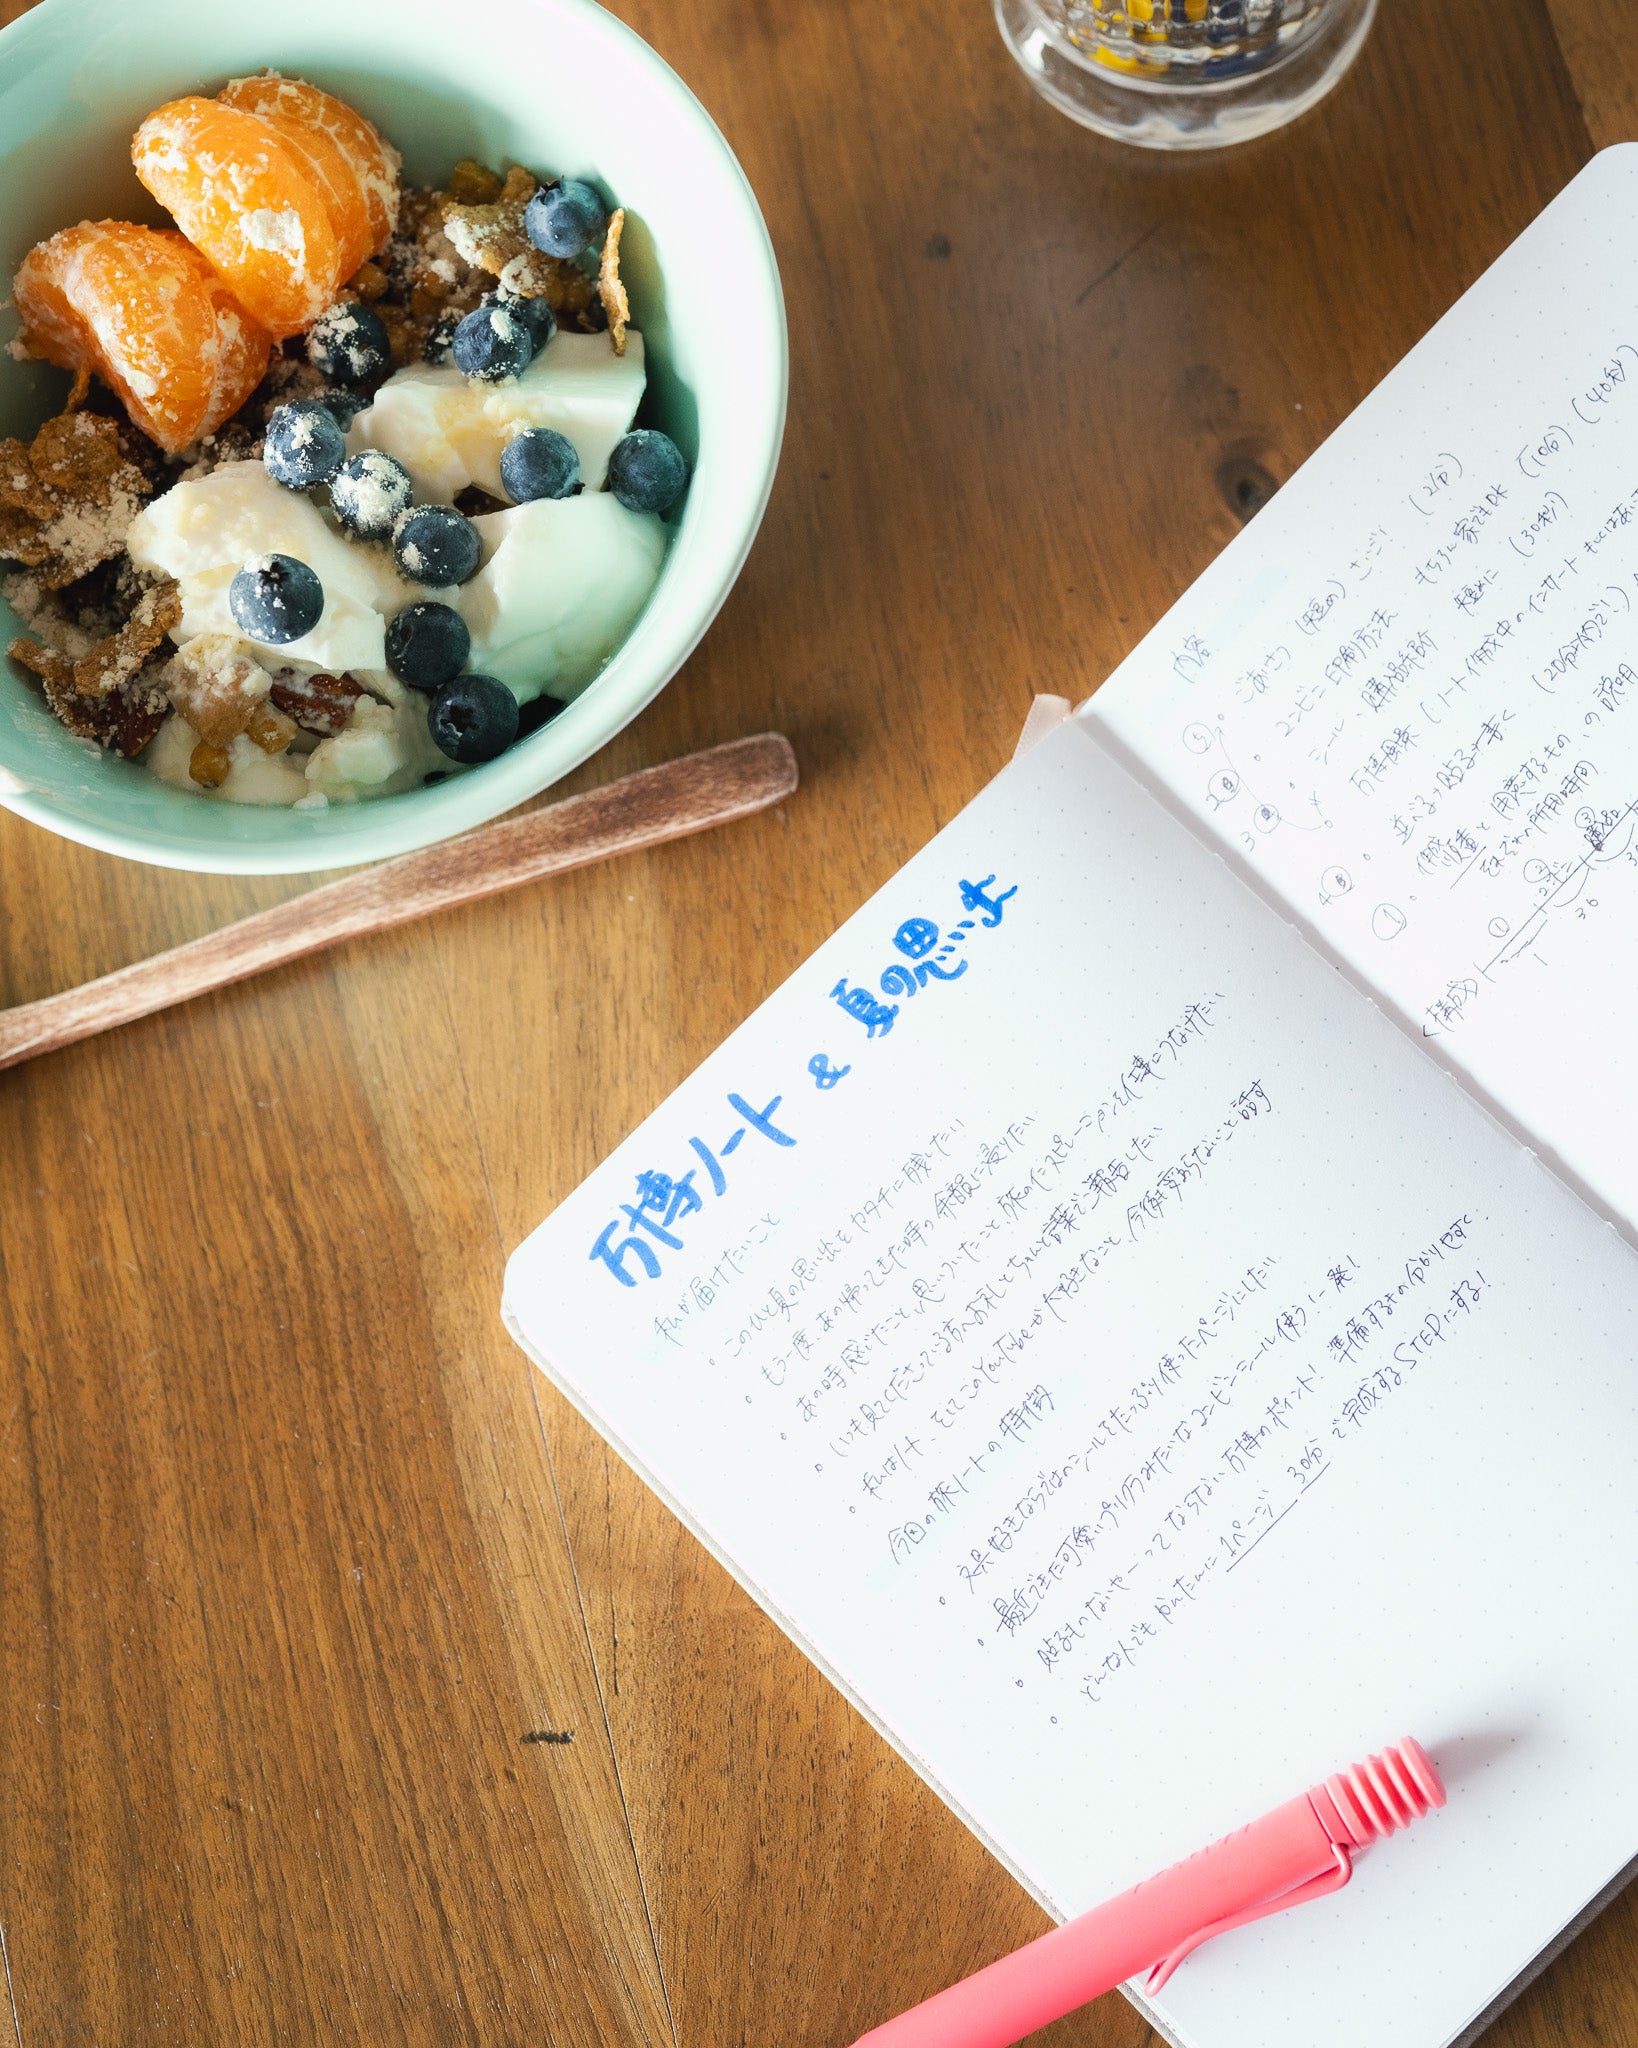 万博ノート & 夏の思い出
私が届けたいこと
このひと夏の思い出をカタチに残したい
もう一度、あの帰ってきた時の余韻に浸りたい
あの時感じたこと、思いついたこと、旅のインスピレーションを仕事につなげたい
いつも見てくださっている方へお礼とちゃんと言葉で報告したい
私はノート、そしてこのYouTubeが大好きなこと、今後も変わらないこと話す
今回の旅ノートの特徴
文具好きならではのシールをたっぷり使ったページにしたい
最近できた可愛いプリクラみたいなコンビニシール使う!一発!
貼るものないやーってならない万博のポイント! 準備するもの分かりやすく
どんな人でも、かんたんに1ページ 30分で完成するSTEPにする!
内容
⑤ ごあいさつ (短めの) さいごに (2分)
2 コンビニ印刷方法 もちろん家でもOK (10分) (40秒)
3 シール、購入品紹介 短めに (30秒)
万博風景 (ノート作成中のインサート
4 並べる→貼る→書く (20分以内で!)
① 作成順番と用意するもの、の説明
それぞれの所用時間
<構成> ① ② コンビニ ③ 購入品
1 36